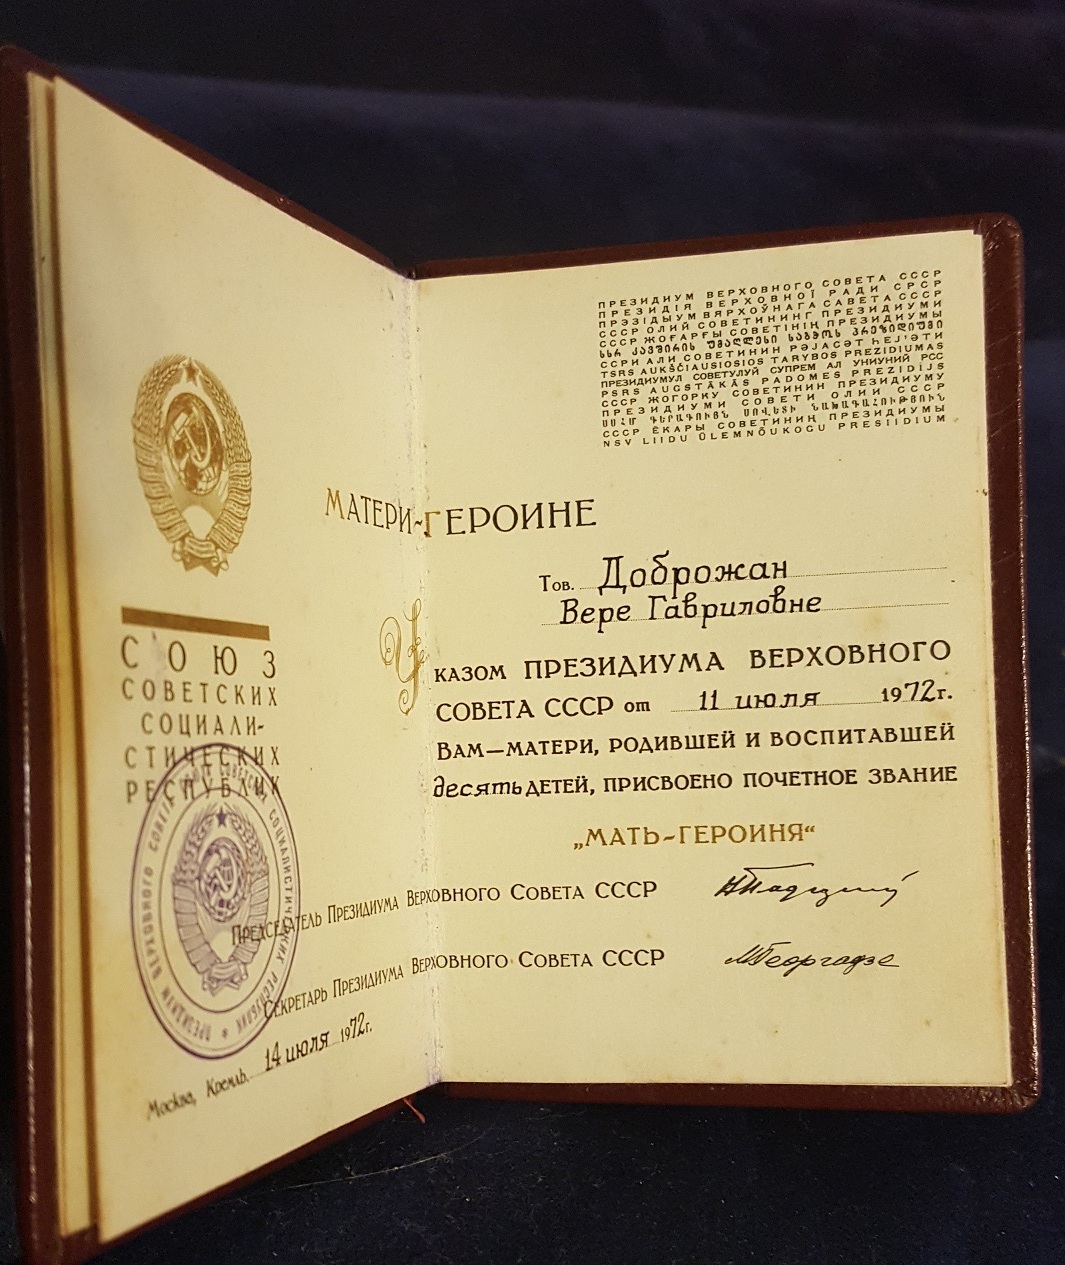 СОЮЗ
СОВЕТСКИХ
СОЦИАЛИ-
СТИЧЕСКИХ
РЕСПУБЛИК
ПРЕЗИДИУМ ВЕРХОВНОГО СОВЕТА СОЮЗА СОВЕТСКИХ СОЦИАЛИСТИЧЕСКИХ РЕСПУБЛИК
ПРЕЗИДИУМ ВЕРХОВНОГО СОВЕТА СССР
ПРЕЗИДІЯ ВЕРХОВНОЇ РАДИ СРСР
ПРЭЗІДЫУМ ВЯРХОЎНАГА САВЕТА СССР
СССР ОЛИЙ СОВЕТИНИНГ ПРЕЗИДИУМИ
СССР ЖОҒАРҒЫ СОВЕТІНІҢ ПРЕЗИДИУМЫ
ᲡᲡᲠ ᲙᲐᲕᲨᲘᲠᲘᲡ ᲣᲛᲐᲦᲚᲔᲡᲘ ᲡᲐᲑᲭᲝᲡ ᲞᲠᲔᲖᲘᲓᲘᲣᲛᲘ
ССРИ АЛИ СОВЕТИНИН РӘЈАСӘТ ҺЕЈ'ӘТИ
TSRS AUKŠČIAUSIOSIOS TARYBOS PREZIDIUMAS
ПРЕЗИДИУМУЛ СОВЕТУЛУЙ СУПРЕМ АЛ УНИУНИЙ РСС
PSRS AUGSTĀKĀS PADOMES PREZIDIJS
СССР ЖОГОРКУ СОВЕТИНИН ПРЕЗИДИУМУ
ПРЕЗИДИУМИ СОВЕТИ ОЛИИ СССР
ՍՍՀՄ ԳԵՐԱԳՈՒՅՆ ՍՈՎԵՏԻ ՆԱԽԱԳԱՀՈՒԹՅՈՒՆ
СССР ЁКАРЫ СОВЕТИНИҢ ПРЕЗИДИУМЫ
NSV LIIDU ÜLEMNÕUKOGU PRESIIDIUM
МАТЕРИ-ГЕРОИНЕ
Тов. Доброжан
Вере Гавриловне
Указом ПРЕЗИДИУМА ВЕРХОВНОГО
СОВЕТА СССР от 11 июля 1972г.
ВАМ—МАТЕРИ, РОДИВШЕЙ И ВОСПИТАВШЕЙ
десять ДЕТЕЙ, ПРИСВОЕНО ПОЧЕТНОЕ ЗВАНИЕ
„МАТЬ-ГЕРОИНЯ“
Председатель Президиума Верховного Совета СССР
Секретарь Президиума Верховного Совета СССР МГеоргадзе
Москва, Кремль. 14 июля 1972г.